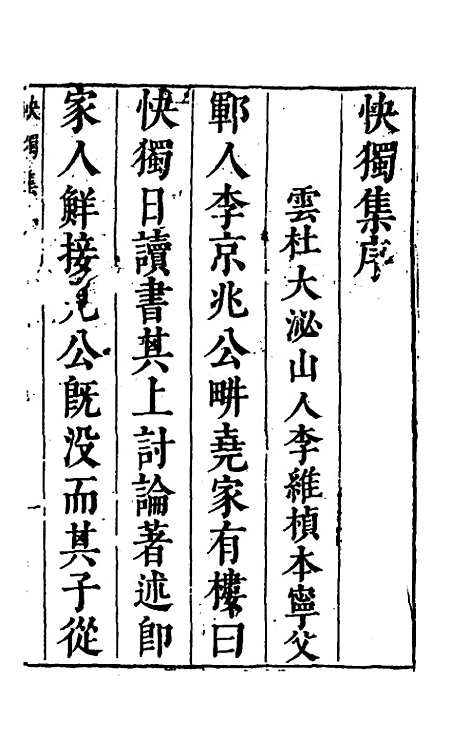 快獨集序
雲杜大泌山人李維楨本寧父
鄆人李京兆公畊堯家有樓曰
快獨日讀書其上討論著述卽
家人鮮接見公旣没而其子從
快獨集